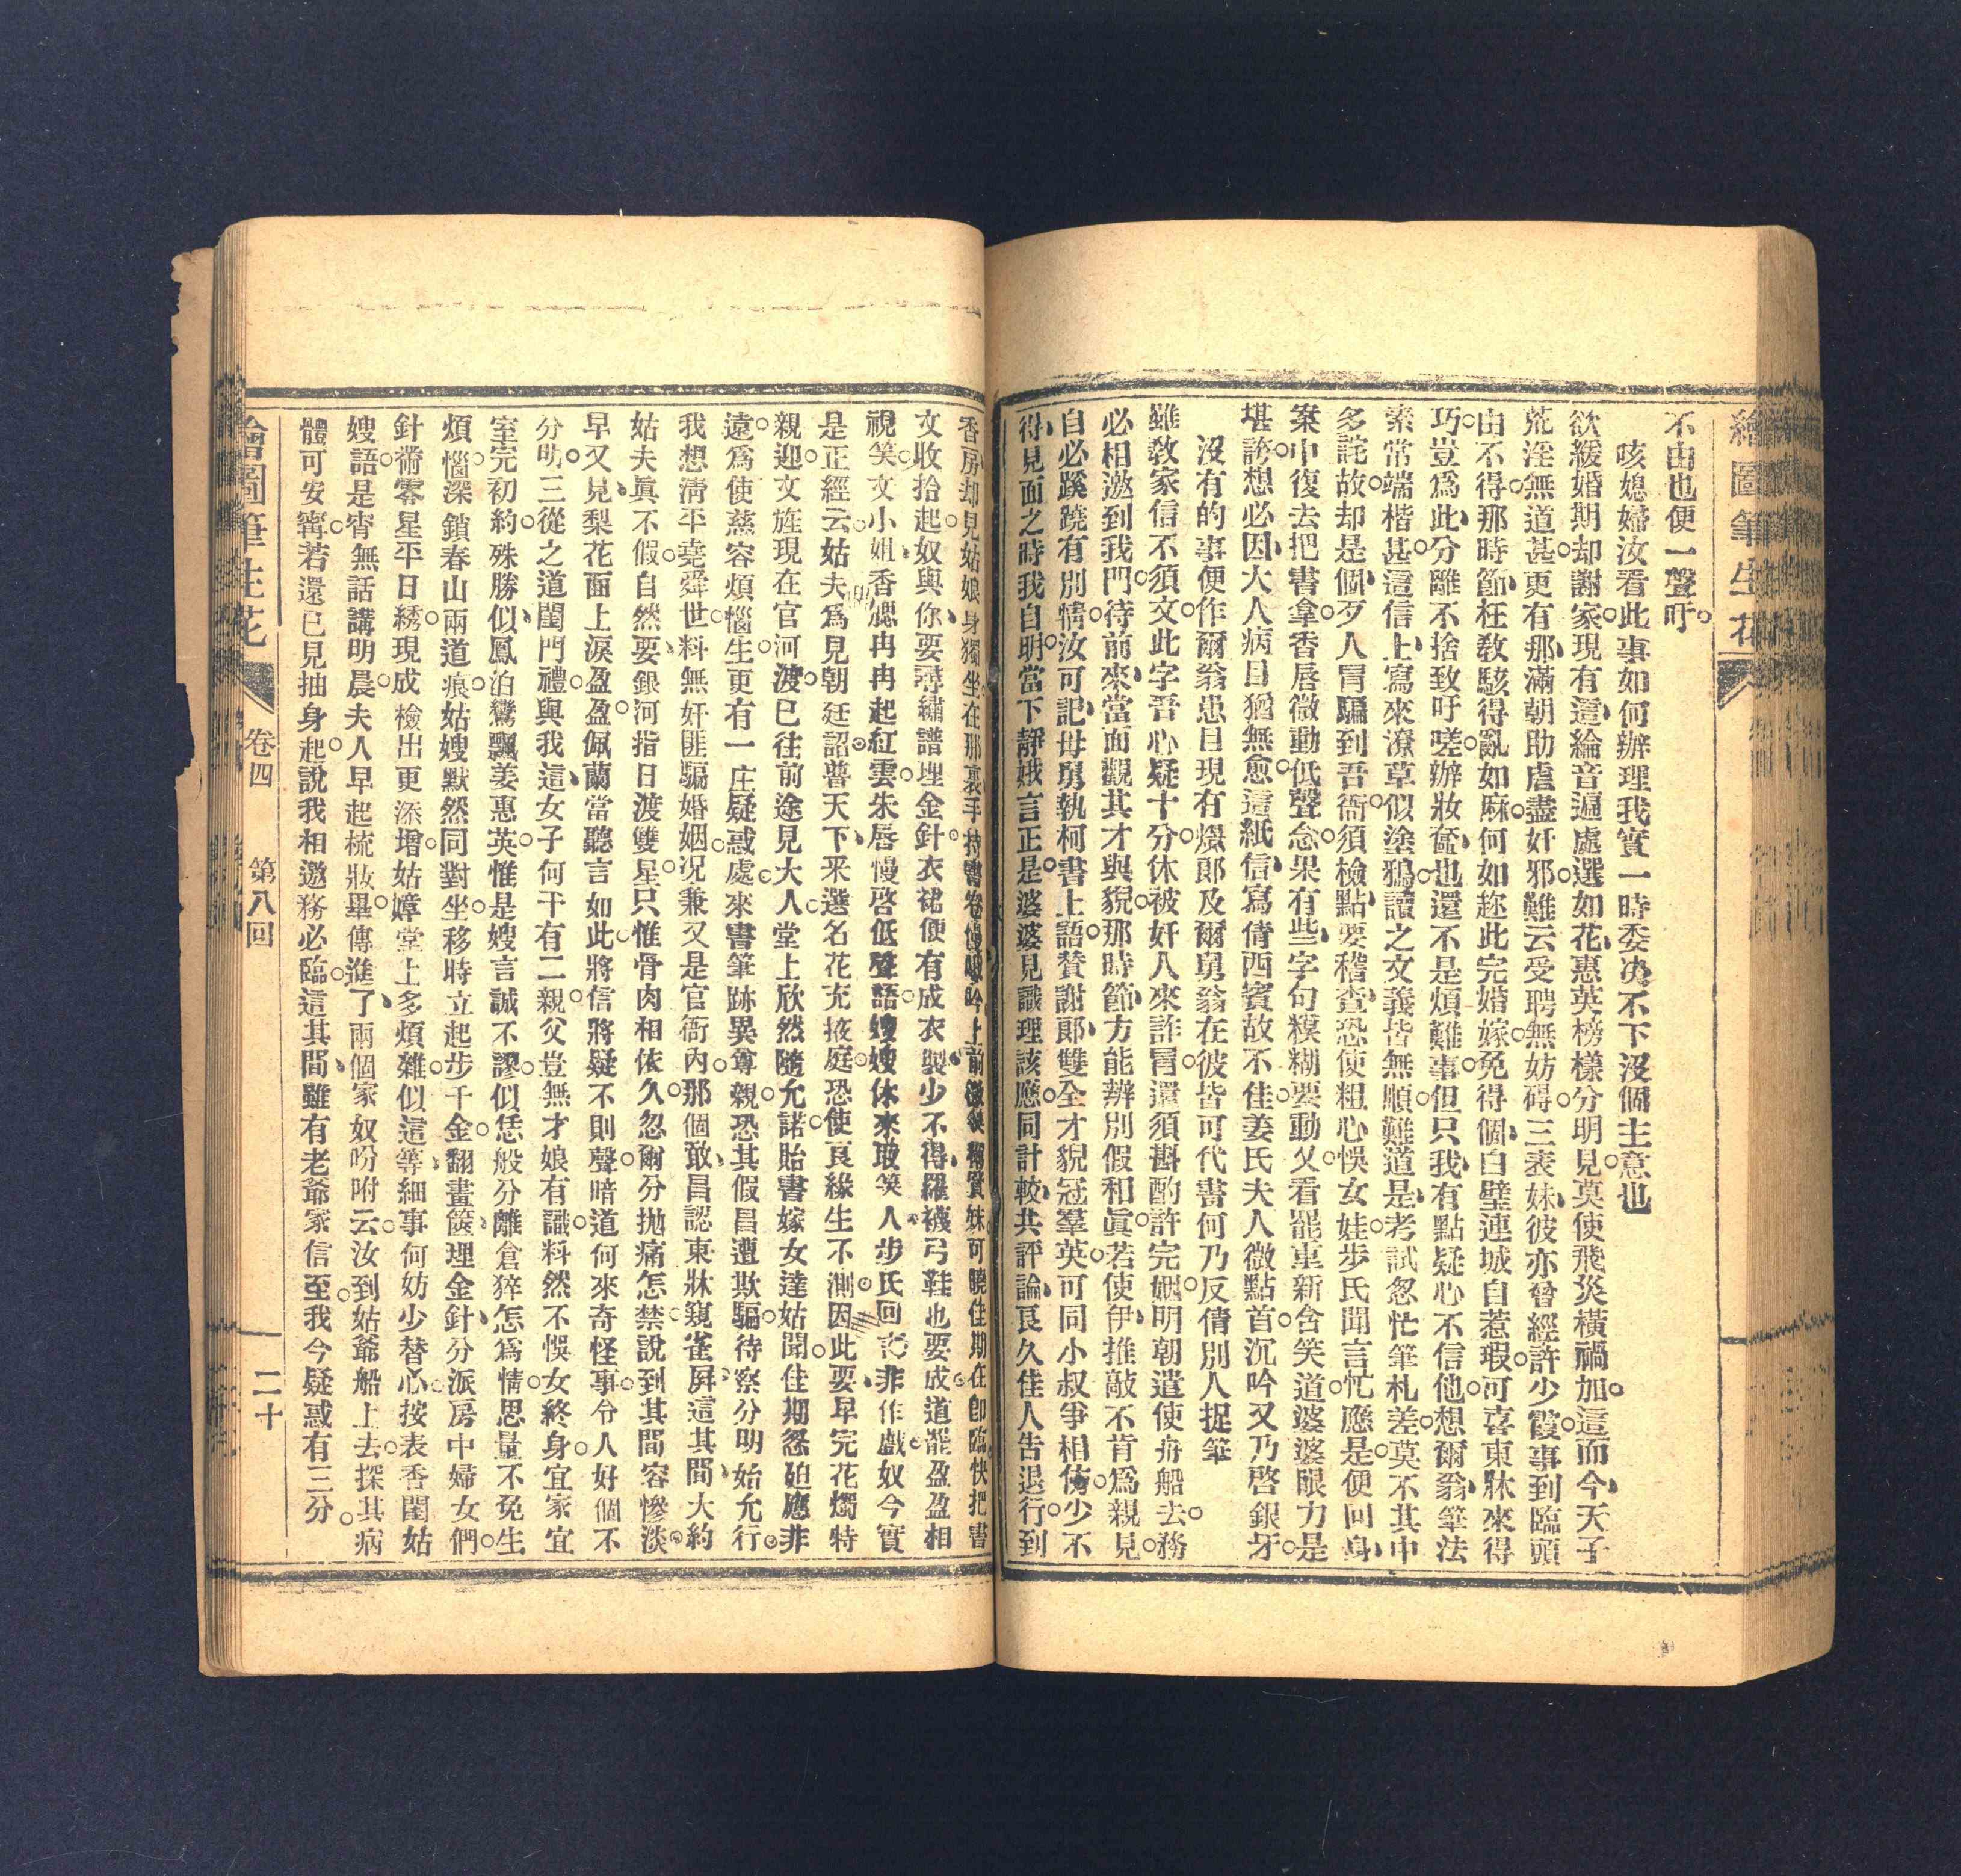 繪圖筆生花
不由也便一聲吁
咳媳婦汝看此事如何辦理我實一時委決不下沒個主意也
欲緩婚期却謝家現有這綸音遍處選如花惠英榜樣分明見莫使飛災橫禍加這而今天子
荒淫無道甚更有那滿朝助虐盡奸邪難云受聘無妨碍三表妹彼亦曾經許少霞事到臨頭
由不得那時節枉敎駭得亂如麻何如趂此完婚嫁免得個白璧連城自惹瑕可喜東牀來得
巧豈爲此分離不捨致吁嗟辦妝奩也還不是煩難事但只我有點疑心不信他想爾翁筆法
素常端楷甚這信上寫來潦草似塗鴉讀之文義皆無順難道是老試忽忙筆札差莫不其中
多詫故却是個歹人冐騙到吾衙須檢點要稽查恐使粗心悞女娃步氏聞言忙應是便回身
案中復去把書拿香唇微動低聲念果有些字句糢糊要動乂看罷重新含笑道婆婆眼力是
堪誇想必因大人病目猶無愈這紙信寫倩西賓故不佳姜氏夫人微點首沉吟又乃啓銀牙
沒有的事便作爾翁患目現有爕郎及爾舅翁在彼皆可代書何乃反倩別人捉筆
雖敎家信不須文此字吾心疑十分休被奸人來詐冐還須斟酌許完姻明朝遣使舟船去務
必相邀到我門待前來當面觀其才與貌那時節方能辨別假和眞若使伊推敲不肯爲親見
自必蹊蹺有別情汝可記母舅執柯書上語贊謝郎雙全才貌冠羣英可同小叔爭相傍少不
得見面之時我自明當下靜娥言正是婆婆見識理該應同計較共評論良久佳人告退行到
香房却見姑娘身獨坐在那裏手持書卷慢嚬吟上前微笑稱賢妹可曉佳期在卽臨快把書
文收拾起奴與你要尋繡譜理金針衣裙便有成衣製少不得羅襪弓鞋也要成道罷盈盈相
視笑文小姐香腮冉冉起紅雲朱唇慢啓低聲語嫂嫂休來取笑人步氏回言非作戲奴今實
是正經云姑夫爲見朝廷詔普天下釆選名花充掖庭恐使良緣生不測因此要早完花燭特
親迎文旌現在官河渡已往前途見大人堂上欣然隨允諾貽書嫁女達姑聞佳期怱廹應非
遠爲使蒸容煩惱生更有一庄疑惑處來書筆跡異尊親恐其假昌遭欺騙待察分明始允行
我想淸平堯舜世料無奸匪騙婚姻况兼又是官衙內那個敢昌認東牀窺雀屛這其間大約
姑夫眞不假自然要銀河指日渡雙星只惟骨肉相依久忽爾分抛痛怎禁說到其間容慘淡
早又見梨花面上淚盈盈佩蘭當聽言如此將信將疑不則聲暗道何來奇怪事令人好個不
分明三從之道閨門禮與我這女子何干有二親父豈無才娘有識料然不悞女終身宜家宜
室完初約殊勝似鳳泊鸞飄姜惠英惟是嫂言誠不謬似恁般分離倉猝怎爲情思量不免生
煩惱深鎖春山兩道痕姑嫂默然同對坐移時立起步千金翻畫篋理金針分派房中婦女們
針黹零星平日綉現成檢出更添增姑嫜堂上多煩雜似這等細事何妨少替心按表香閨姑
嫂語是宵無話講明晨夫人早起梳妝畢傳進了兩個家奴吩咐云汝到姑爺船上去探其病
體可安寗若還已見抽身起說我相邀務必臨這其間雖有老爺家信至我今疑惑有三分
繪圖筆生花 卷四 第八回 二十